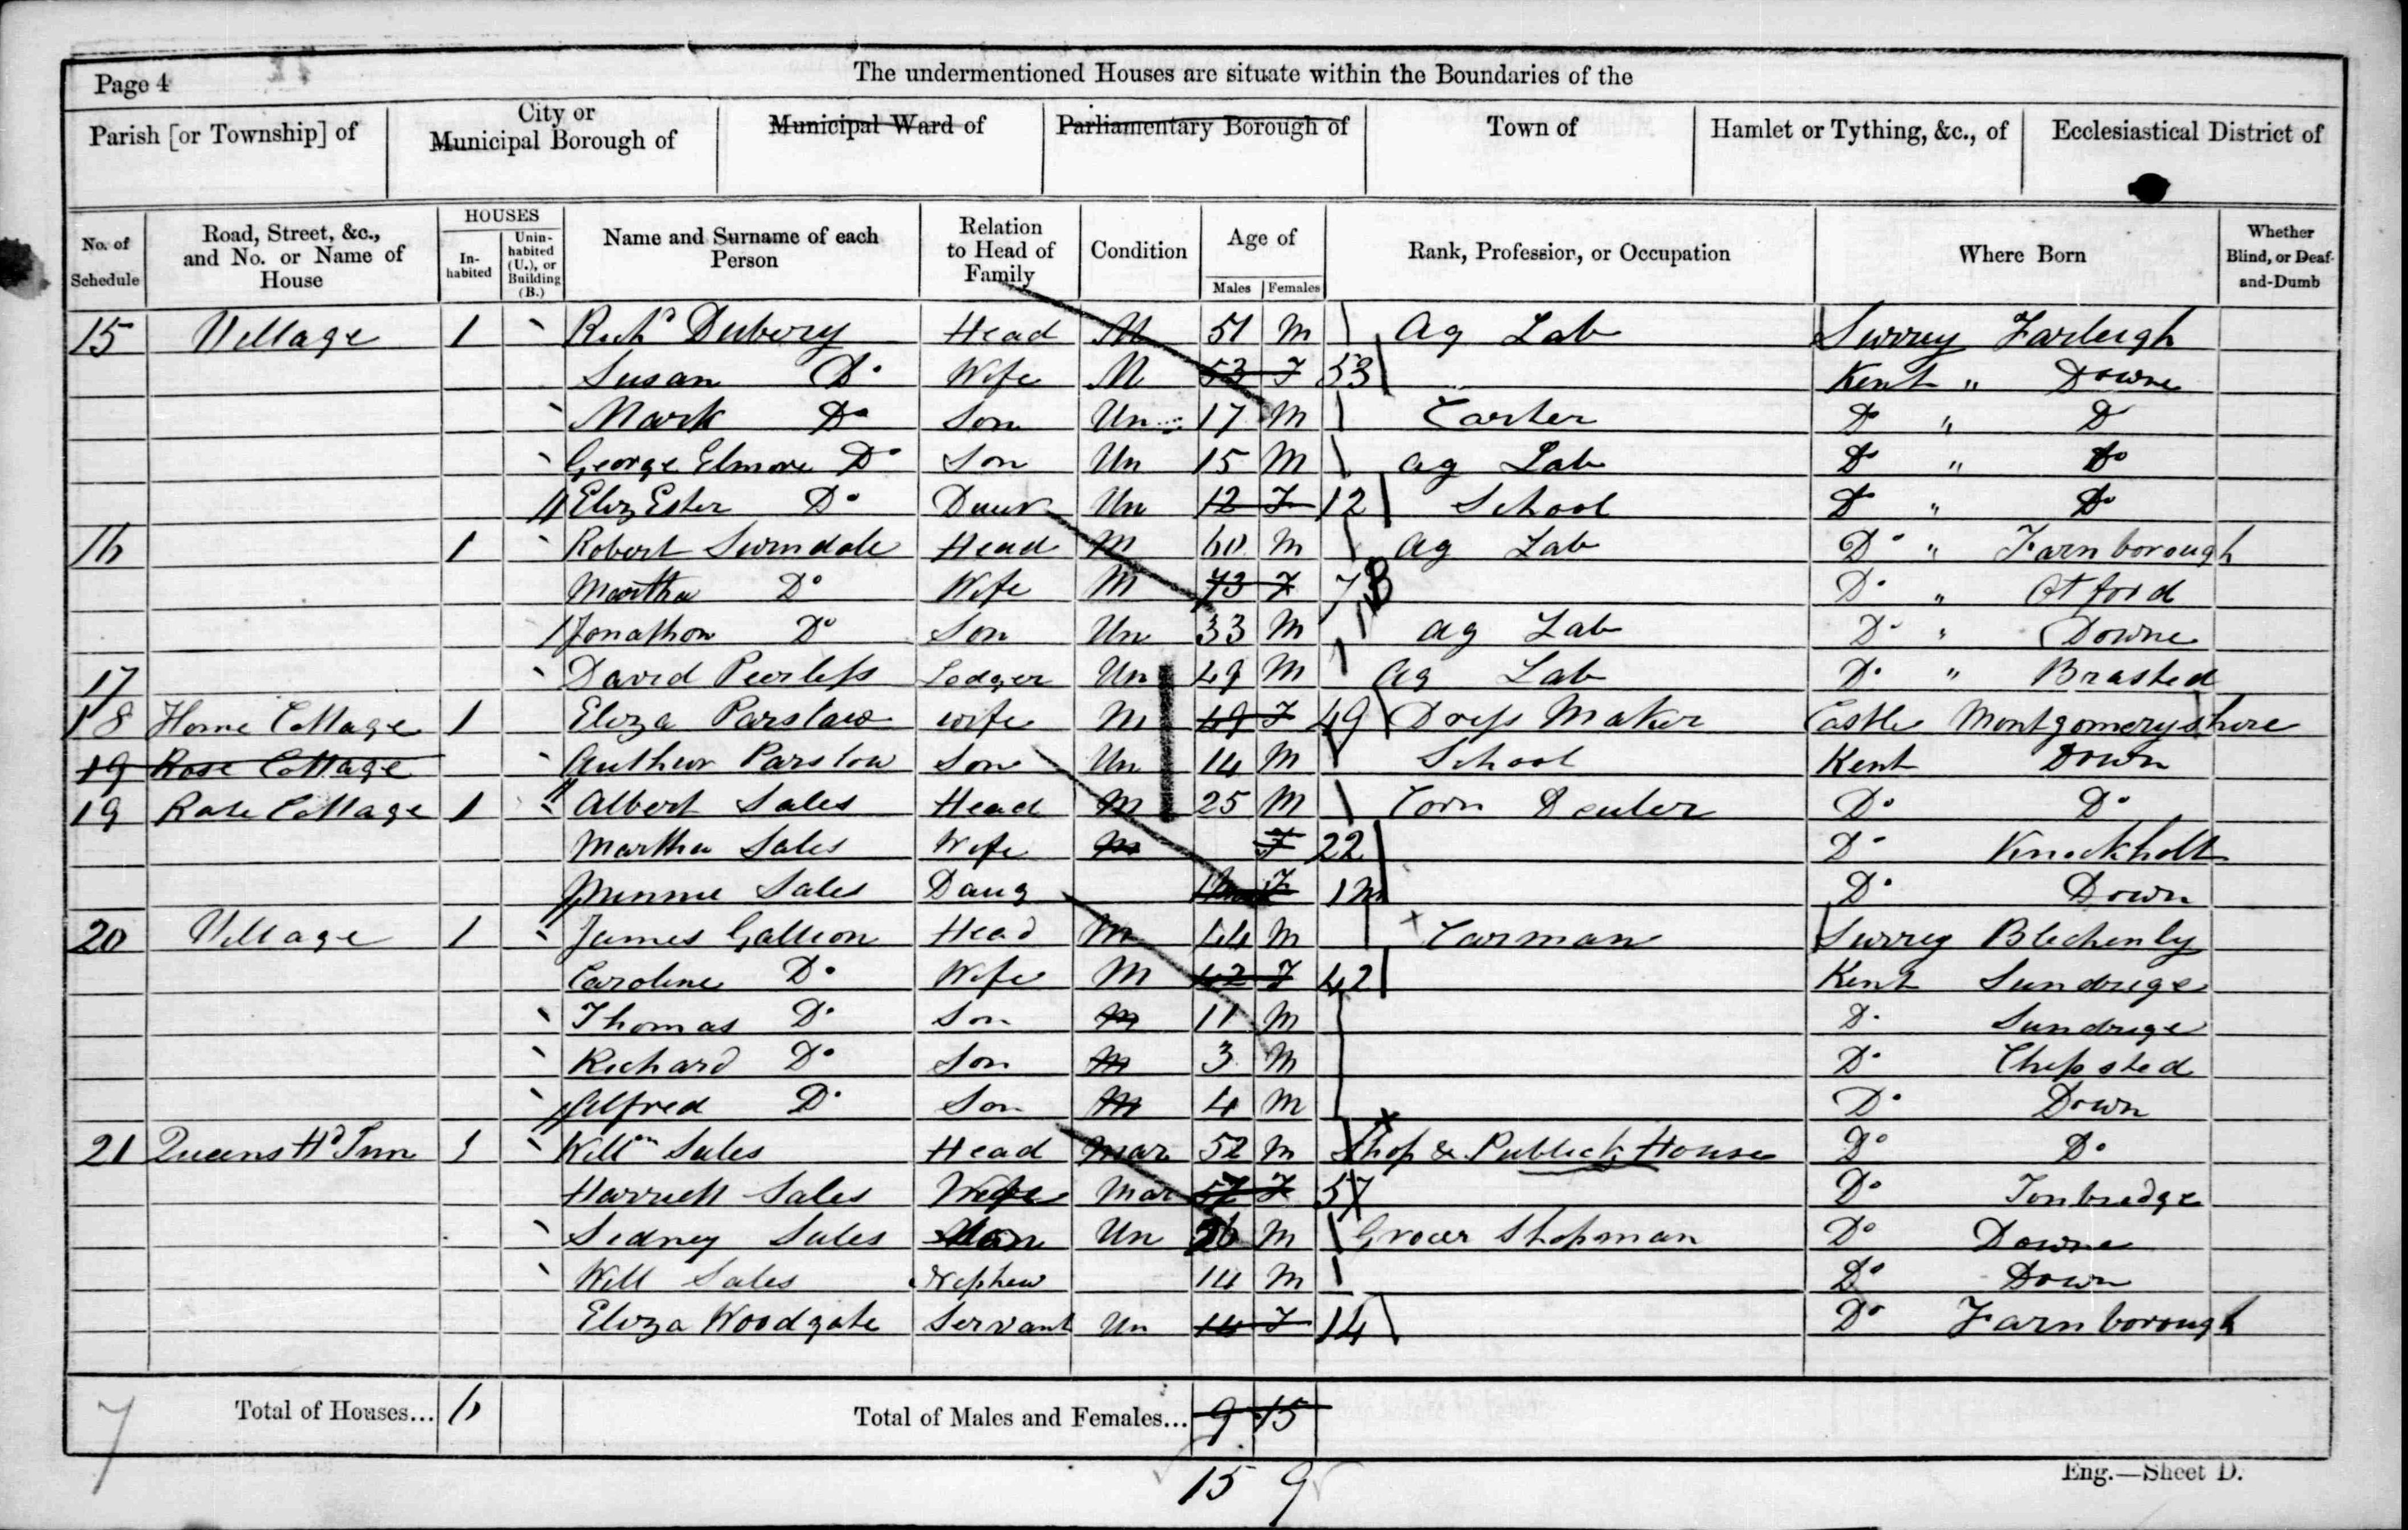 Page 4
The undermentioned Houses are situate within the Boundaries of the
Parish [or Township] of City or Municipal Borough of Municipal Ward of Parliamentary Borough of Town of Hamlet or Tything, &c., of Ecclesiastical District of
No. of Schedule Road, Street, &c., and No. or Name of House HOUSES In-habited Unin-habited (U.), or Building (B.) Name and Surname of each Person Relation to Head of Family Condition Age of Males Females Rank, Profession, or Occupation Where Born Whether Blind, or Deaf-and-Dumb
15 Village 1 Richd Dubery Head M 51 M Ag Lab Surrey Farleigh
Susan Do Wife M 53 F 53 Kent " Downe
Mark Do Son Un 17 M Carter Do " D
George Elmore Do Son Un 15 M Ag Lab Do " Do
Eliz Ester Do Daur Un 12 F 12 School Do " Do
16 1 Robert Swindale Head M 60 M Ag Lab Do " Farnborough
Martha Do Wife M 73 F 73 Do " Otford
Jonathon Do Son Un 33 M Ag Lab Do " Downe
17 David Peerless Lodger Un 49 M Ag Lab Do " Brasted
18 Home Cottage 1 Eliza Parslaw wife M 49 F 49 Dress Maker Castle Montgomeryshire
19 Rose Cottage Authur Parslow Son Un 14 M School Kent Down
19 Rose Cottage 1 Albert Sales Head M 25 M Corn Dealer Do Do
Martha Sales Wife M F 22 Do Knockholt
Minnie Sales Daug 1m F 1m Do Down
20 Village 1 James Gallion Head M 44 M Carman Surrey Blechenly
Caroline Do Wife M 42 F 42 Kent Sundrige
Thomas Do Son M 11 M Do Sundrige
Richard Do Son M 3 M Do Chepsted
Alfred Do Son M 4 M Do Down
21 Queens Hd Inn 1 Willm Sales Head Mar 52 M Shop & Publick House Do Do
Harriett Sales Wife Mar 57 F 57 Do Tonbridge
Sidney Sales Son Un M Grocer Shopman Do Downe
Will Sales Nephew 14 M Do Down
Eliza Woodgate Servant Un 14 F 14 Do Farnborough
Total of Houses... 6 Total of Males and Females... 9 15
15 9
7
Eng.—Sheet D.